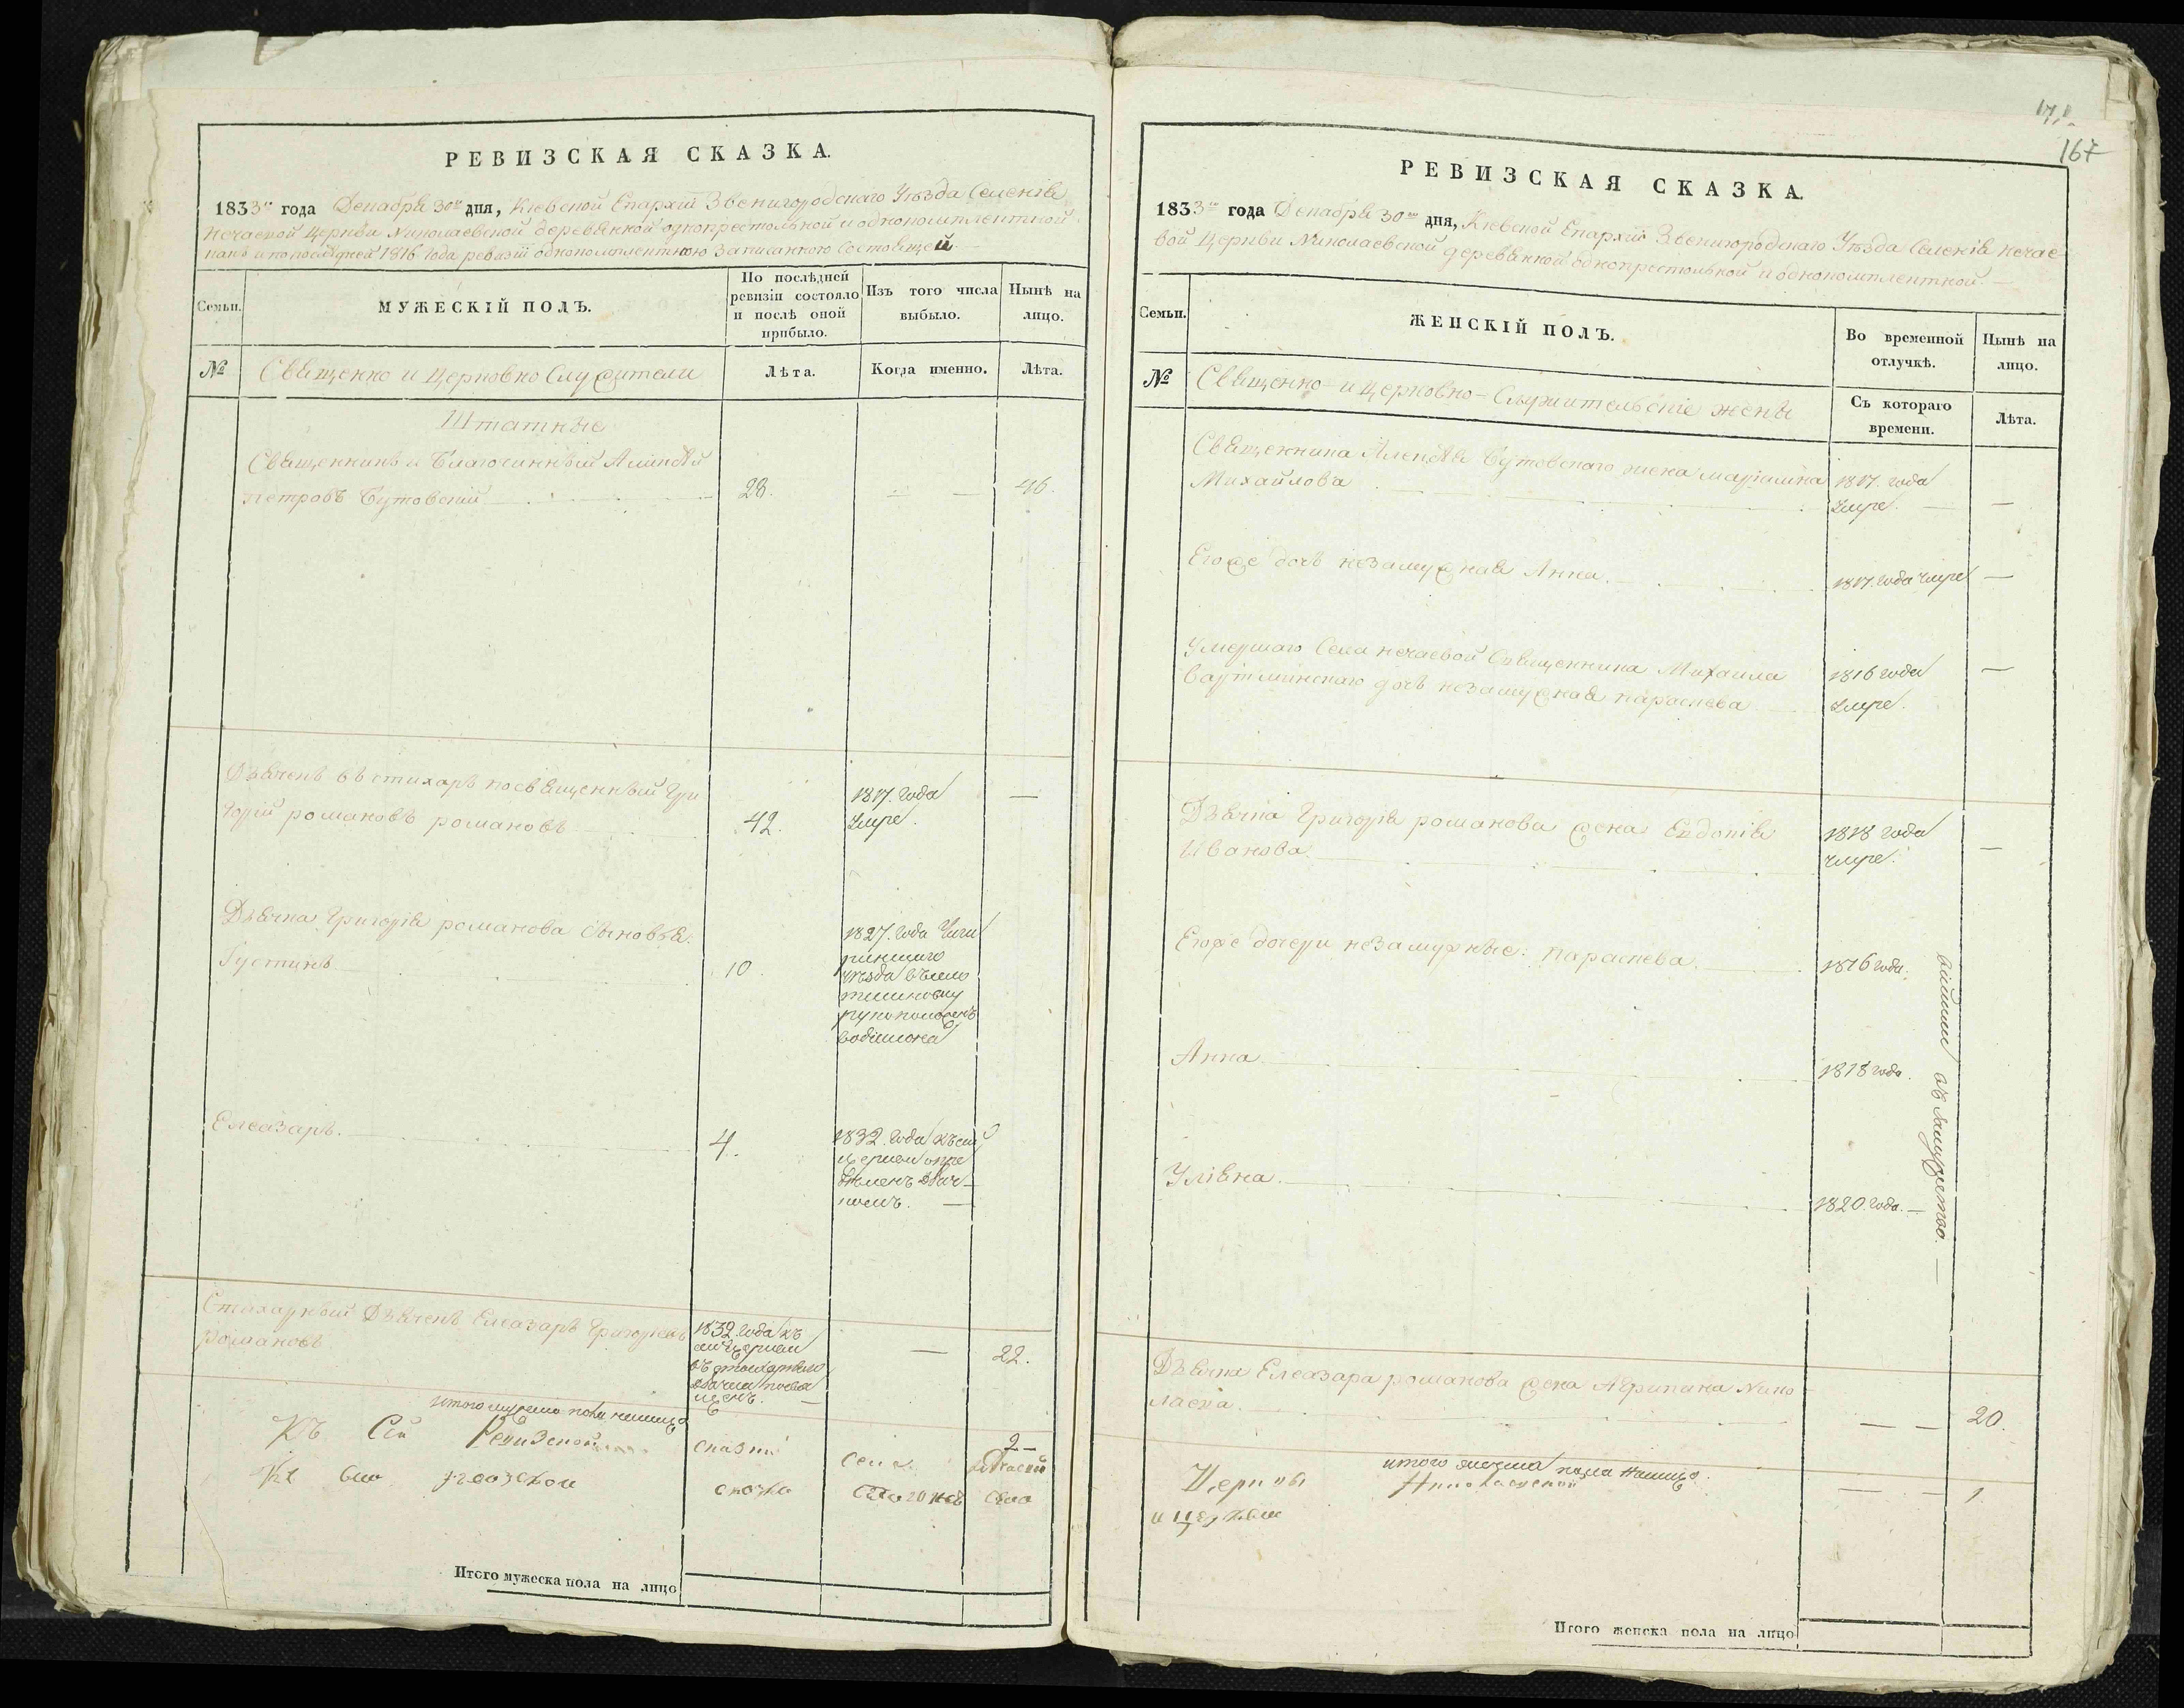 РЕВИЗСКАЯ СКАЗКА.
1833го года Декабря 30го дня, Кіевской Епархіи Звенигородскаго Уѣзда Селенія
Нечаевой Церкви Николаевской деревянной однопрестольной и однокомплентной
какъ и по послѣдней 1816 года ревизіи однокомплентною записанною состоящей
Семьи.
МУЖЕСКІЙ ПОЛЪ.
По послѣдней ревизіи состояло и послѣ оной прибыло.
Изъ того числа выбыло.
Нынѣ на лицо.
№
Священно и Церковно Служители
Лѣта.
Когда именно.
Лѣта.
Штатные
Священникъ и Благочинный Алексѣй
Петровъ Бутовскій 28. — — 46.
Дьячекъ въ стихарь посвященный Гри
горій Романовъ Романовъ 42.
1817. года
умре. —
Дьячка Григорія Романова сыновья:
Густинъ 10.
1827. года Чиги
ринскаго
уѣзда въ село
рукоположенъ
во діакона
Елеазаръ. 4.
1832. года къ сей
церкви опре
дѣленъ дьяч
комъ. —
Стихарный Дьячекъ Елеазаръ Григорьевъ
Романовъ
1832. года къ
сей церкви
въ стихарнаго
дьячка посвя
щенъ. —
— 22.
итого мужеска пола налицо 2 —
Къ Сей Ревизской сказки села
Итого мужеска пола на лицо
171.
167
РЕВИЗСКАЯ СКАЗКА.
1833го года Декабря 30го дня, Кіевской Епархіи Звенигородскаго Уѣзда Селенія Нечае
вой Церкви Николаевской деревянной однопрестольной и однокомплентной. —
Семьи.
ЖЕНСКІЙ ПОЛЪ.
Во временной отлучкѣ.
Нынѣ на лицо.
№
Священно- и Церковно-Служительскіе жены
Съ котораго времени.
Лѣта.
Священника Алексѣя Бутовскаго жена Маріамна
Михайлова
1817. года
умре. — —
Его же дочь незамужная Анна. 1817. года умре —
Умершаго Села Нечаевой Священника Михаила
дочь незамужная Параскева
1816 года
умре. —
Дьячка Григорія Романова жена Евдокія
Иванова
1818 года
умре. —
Его же дочери незамужные: Параскева. 1816 года.
Анна 1818 года.
Уліяна. 1820. года. —
въ замужество. —
Дьячка Елеазара Романова жена Агрипина Нико
лаева. — — 20.
итого женска пола налицо. — — 1
Церкви Николаевской
Итого женска пола на лицо